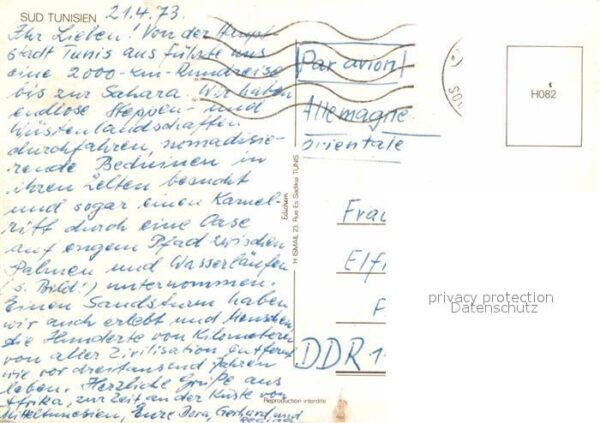 SUD TUNISIEN
21.4.73.
Ihr Lieben! Von der Haupt-
stadt Tunis aus führte uns
eine 2000-km-Rundreise
bis zur Sahara. Wir haben
endlose Steppen- und
Wüstenlandschaften
durchfahren, nomadisie-
rende Beduinen in
ihren Zelten besucht
und sogar einen Kamel-
ritt durch eine Oase
auf engem Pfad zwischen
Palmen und Wasserläufen
(s. Bild!) unternommen.
Einen Sandsturm haben
wir auch erlebt und Menschen,
die Hunderte von Kilometern
von aller Zivilisation entfernt
wie vor dreitausend Jahren
leben. Herzliche Grüße aus
Afrika, zur Zeit an der Küste von
Mitteltunesien, Eure Dora, Gerhard und
Regina
Edichem
H ISMAIL 23, Rue Es Sadikia TUNIS
Reproduction interdite
Par avion
Allemagne
orientale
Frau
Elf
DDR 1
H082
privacy protection
Datenschutz